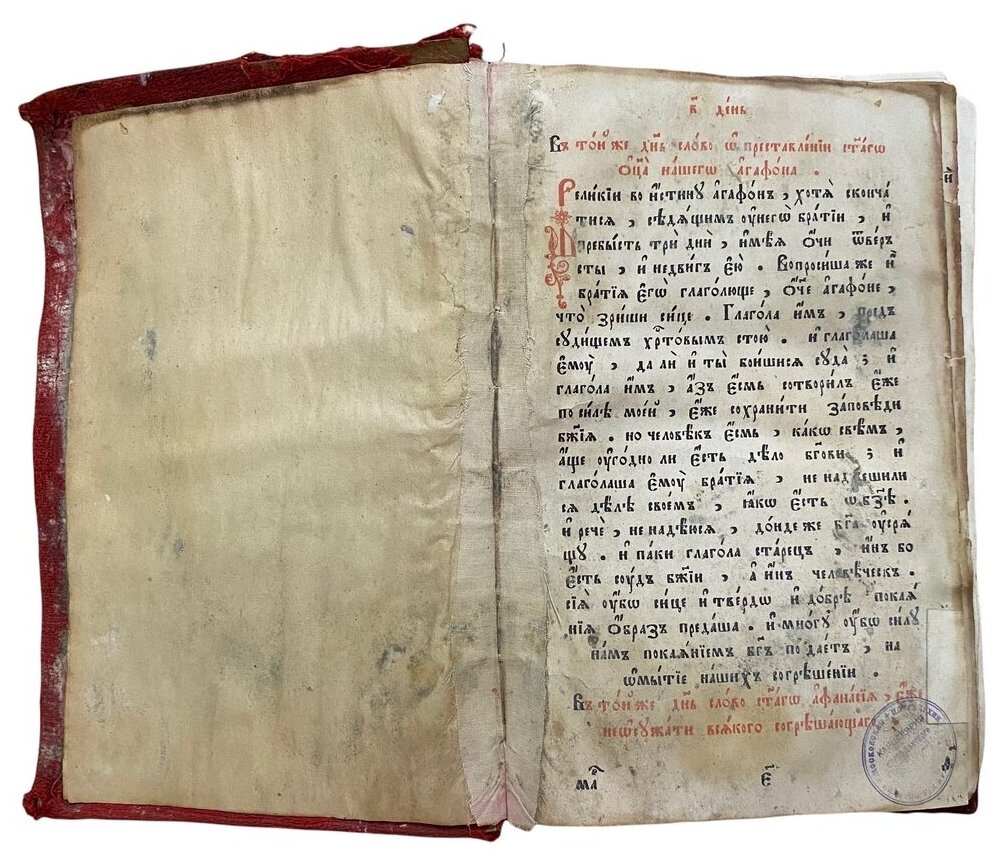 в҃ де́нь
Въ то́йже дн҃ь сло́во ѡ҆ преставле́нїи ст҃а́гѡ
ѻ҆ц҃а̀ на́шегѡ а҆гаѳо́на .
Вели́кїи во и҆́стину а҆гаѳо́нъ , хотѧ̀ сконча́
тисѧ , сѣдѧ́щимъ ѹ҆негѡ̀ бра́тїи , и҆
пребы́сть трѝ дни̑ , и҆мѣ́ѧ ѻ҆́чи ѿве́р
сты , и҆ недви́гъ є҆ю̀ . Вопроси́ша же и҆̀
бра́тїѧ є҆гѡ̀ глаго́люще , ѻ҆́ч҃е а҆гаѳо́не ,
что̀ зри́ши си́це . Глаго́ла и҆̀мъ , пред̾
суди́щемъ хр҃то́вымъ стою̀ . и҆ глаго́лаша
є҆мѹ̀ , да лѝ и҆ ты̀ бои́шисѧ суда̀ ; и҆
глаго́ла и҆̀мъ , а҆́зъ є҆́смь сотвори́лъ є҆́же
по си́лѣ мое́й , є҆́же сохрани́ти за́повѣди
бж҃їѧ . но человѣ́къ є҆́смь , ка́кѡ свѣ́мъ ,
а҆́ще ѹ҆го́дно ли є҆́сть дѣ́ло бг҃ови ; и҆
глаго́лаша є҆мѹ̀ бра́тїѧ , не над̾ѣешили
сѧ дѣ́лѣ свое́мъ , ꙗ҆́кѡ є҆́сть ѡ҆ бз҃ѣ .
и҆ речѐ , не надѣ́юсѧ , до́нде же бг҃а ѹ҆срѧ́
щу . и҆ па́ки глаго́ла ста́рецъ , и҆́нъ бо
є҆́сть сѹ́дъ бж҃їи , а҆ и҆́нъ человѣ́ческъ .
сїѧ̑ ѹ҆́бѡ си́це и҆ тве́рдѡ и҆ до́брѣ покаѧ́
нїѧ ѻ҆́браз̾ преда́ша . и҆ мно́гу ѹ҆́бѡ си́лу
на́мъ покаѧ́нїемъ бг҃ъ подае́тъ , на
ѡ҆мы́тїе на́шихъ согрѣше́нїи .
Въ то́йже дн҃ь сло́во ст҃а́гѡ а҆фана́сїѧ , є҆́же
неѡ҆сужа́ти всѧ́кого согрѣша́ющаго
ма̑р є҃